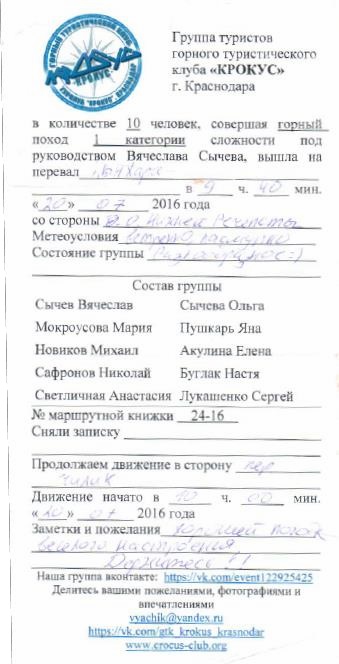 ГОРНЫЙ ТУРИСТИЧЕСКИЙ КЛУБ
"КРОКУС"
Группа туристов
горного туристического
клуба «КРОКУС»
г. Краснодара
в количестве 10 человек, совершая горный
поход 1 категории сложности под
руководством Вячеслава Сычева, вышла на
перевал
в 9 ч. 40 мин.
«20» 07 2016 года
со стороны Нижней
Метеоусловия ветрено, пасмурно
Состояние группы
Состав группы
Сычев Вячеслав Сычева Ольга
Мокроусова Мария Пушкарь Яна
Новиков Михаил Акулина Елена
Сафронов Николай Буглак Настя
Светличная Анастасия Лукашенко Сергей
№ маршрутной книжки 24-16
Сняли записку
Продолжаем движение в сторону пер
чилик
Движение начато в 10 ч. 00 мин.
«20» 07 2016 года
Заметки и пожелания хорошей погоды
веселого настроения,
Держитесь !!
Наша группа вконтакте: https://vk.com/event122925425
Делитесь вашими пожеланиями, фотографиями и
впечатлениями
vyachik@yandex.ru
https://vk.com/gtk_krokus_krasnodar
www.crocus-club.org